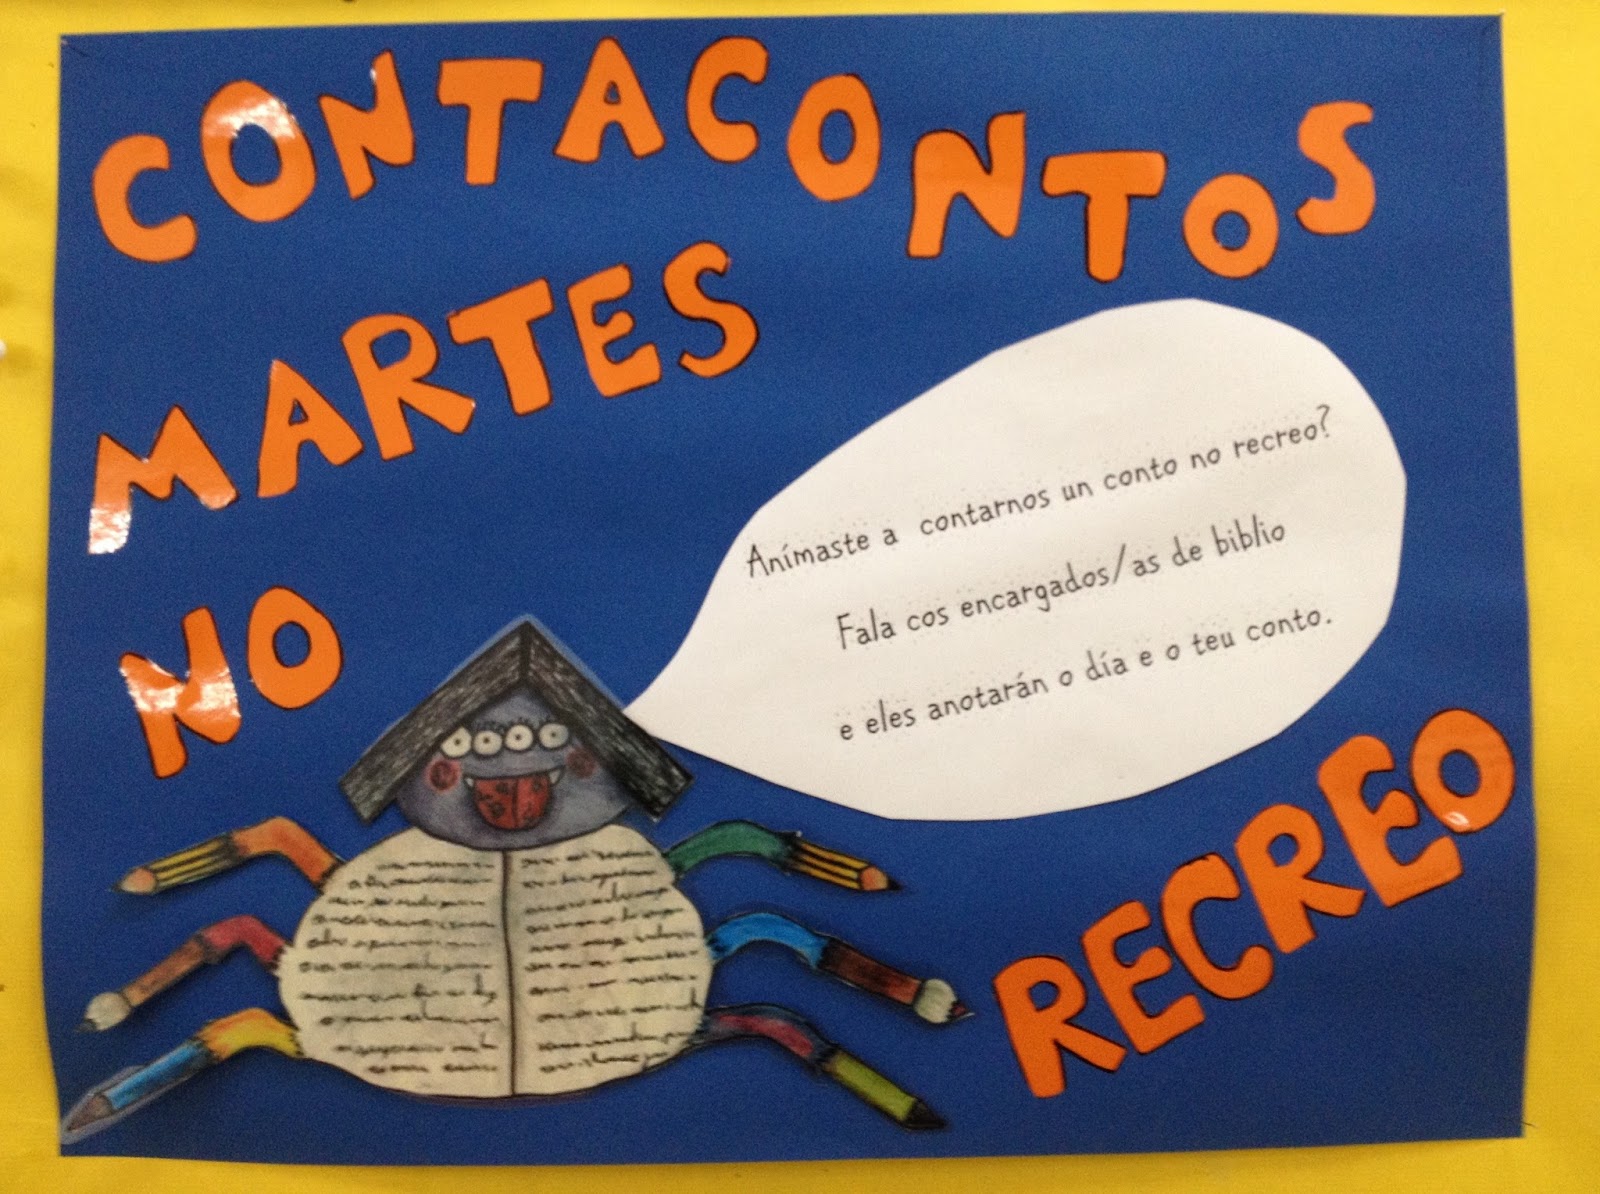 CONTACONTOS
MARTES
NO
RECREO
Anímaste a contarnos un conto no recreo?
Fala cos encargados/as de biblio
e eles anotarán o día e o teu conto.